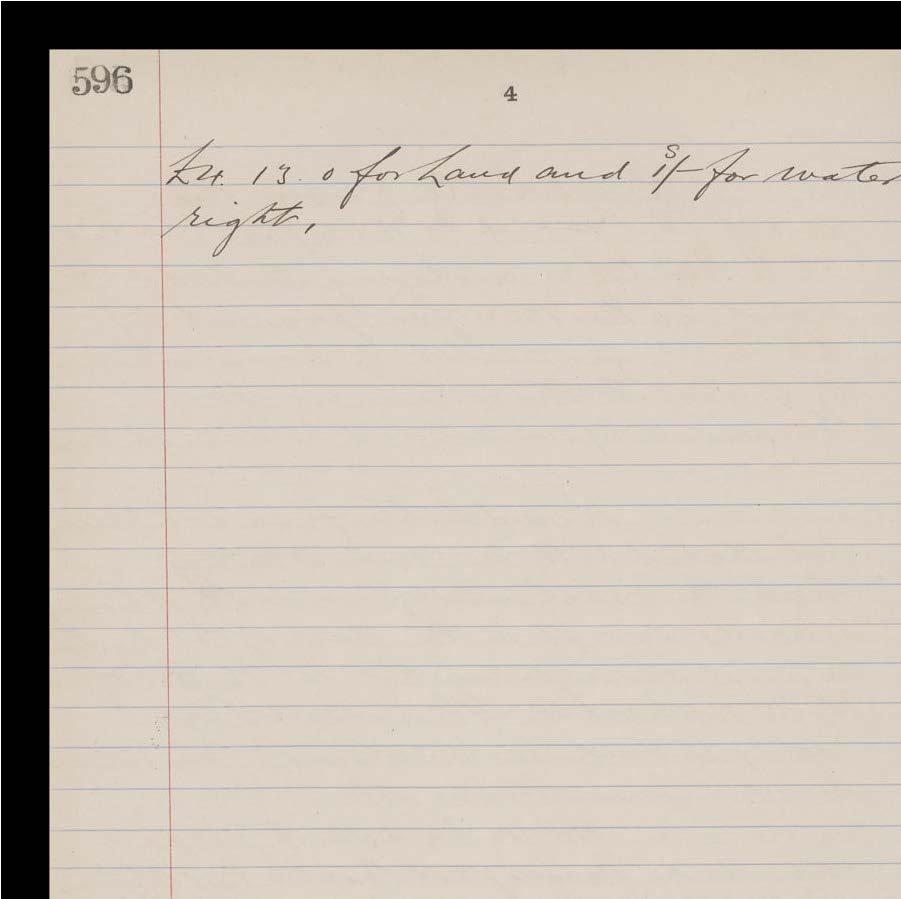 596
4
£4. 13. 0 for Land and 1/- for water
right,